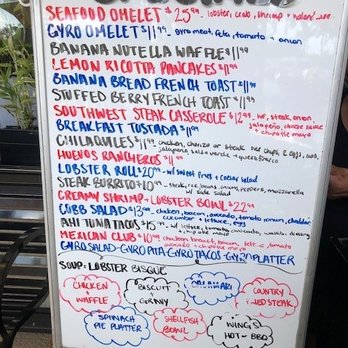 SEAFOOD OMELET $25.99 lobster, crab, shrimp +
GYRO OMELET $11.99 gyro meat, feta, tomato + onion
BANANA NUTELLA WAFFLE $11.99
LEMON RICOTTA PANCAKES $11.99
BANANA BREAD FRENCH TOAST $11.99
STUFFED BERRY FRENCH TOAST $11.99
SOUTHWEST STEAK CASSEROLE $13.99 steak, onion,
jalapeño, cheese sauce
+ chipotle mayo
BREAKFAST TOSTADA $11.99
CHILAQUILES $11.99 chicken, chorizo or steak chips, 2 eggs,
jalapeño, salsa verde + queso fresco
HUEVOS RANCHEROS $11.99
LOBSTER ROLL $20.99 w/ sweet fries + caesar salad
STEAK BURRITO $10.99 steak, rice, beans, onion, peppers, mozzarella
w/ side salad
CREAMY SHRIMP + LOBSTER BOWL $22.99
COBB SALAD $13.99 chicken, bacon, avocado, tomato, onion, cheddar,
cucumber + lettuce, egg
AHI TUNA TACOS $15.99 w/ lettuce, tomato, avocado,
MEXICAN CLUB $10.99 chicken breast, bacon, lett. + tomato
avocado + chipotle mayo
GYRO SALAD - GYRO PITA - GYRO TACOS - GYRO PLATTER
SOUP: LOBSTER BISQUE
CHICKEN + WAFFLE
BISCUIT + GRAVY
CALAMARI
COUNTRY FRIED STEAK
SPINACH PIE PLATTER
SHELLFISH BOWL
WINGS HOT - BBQ